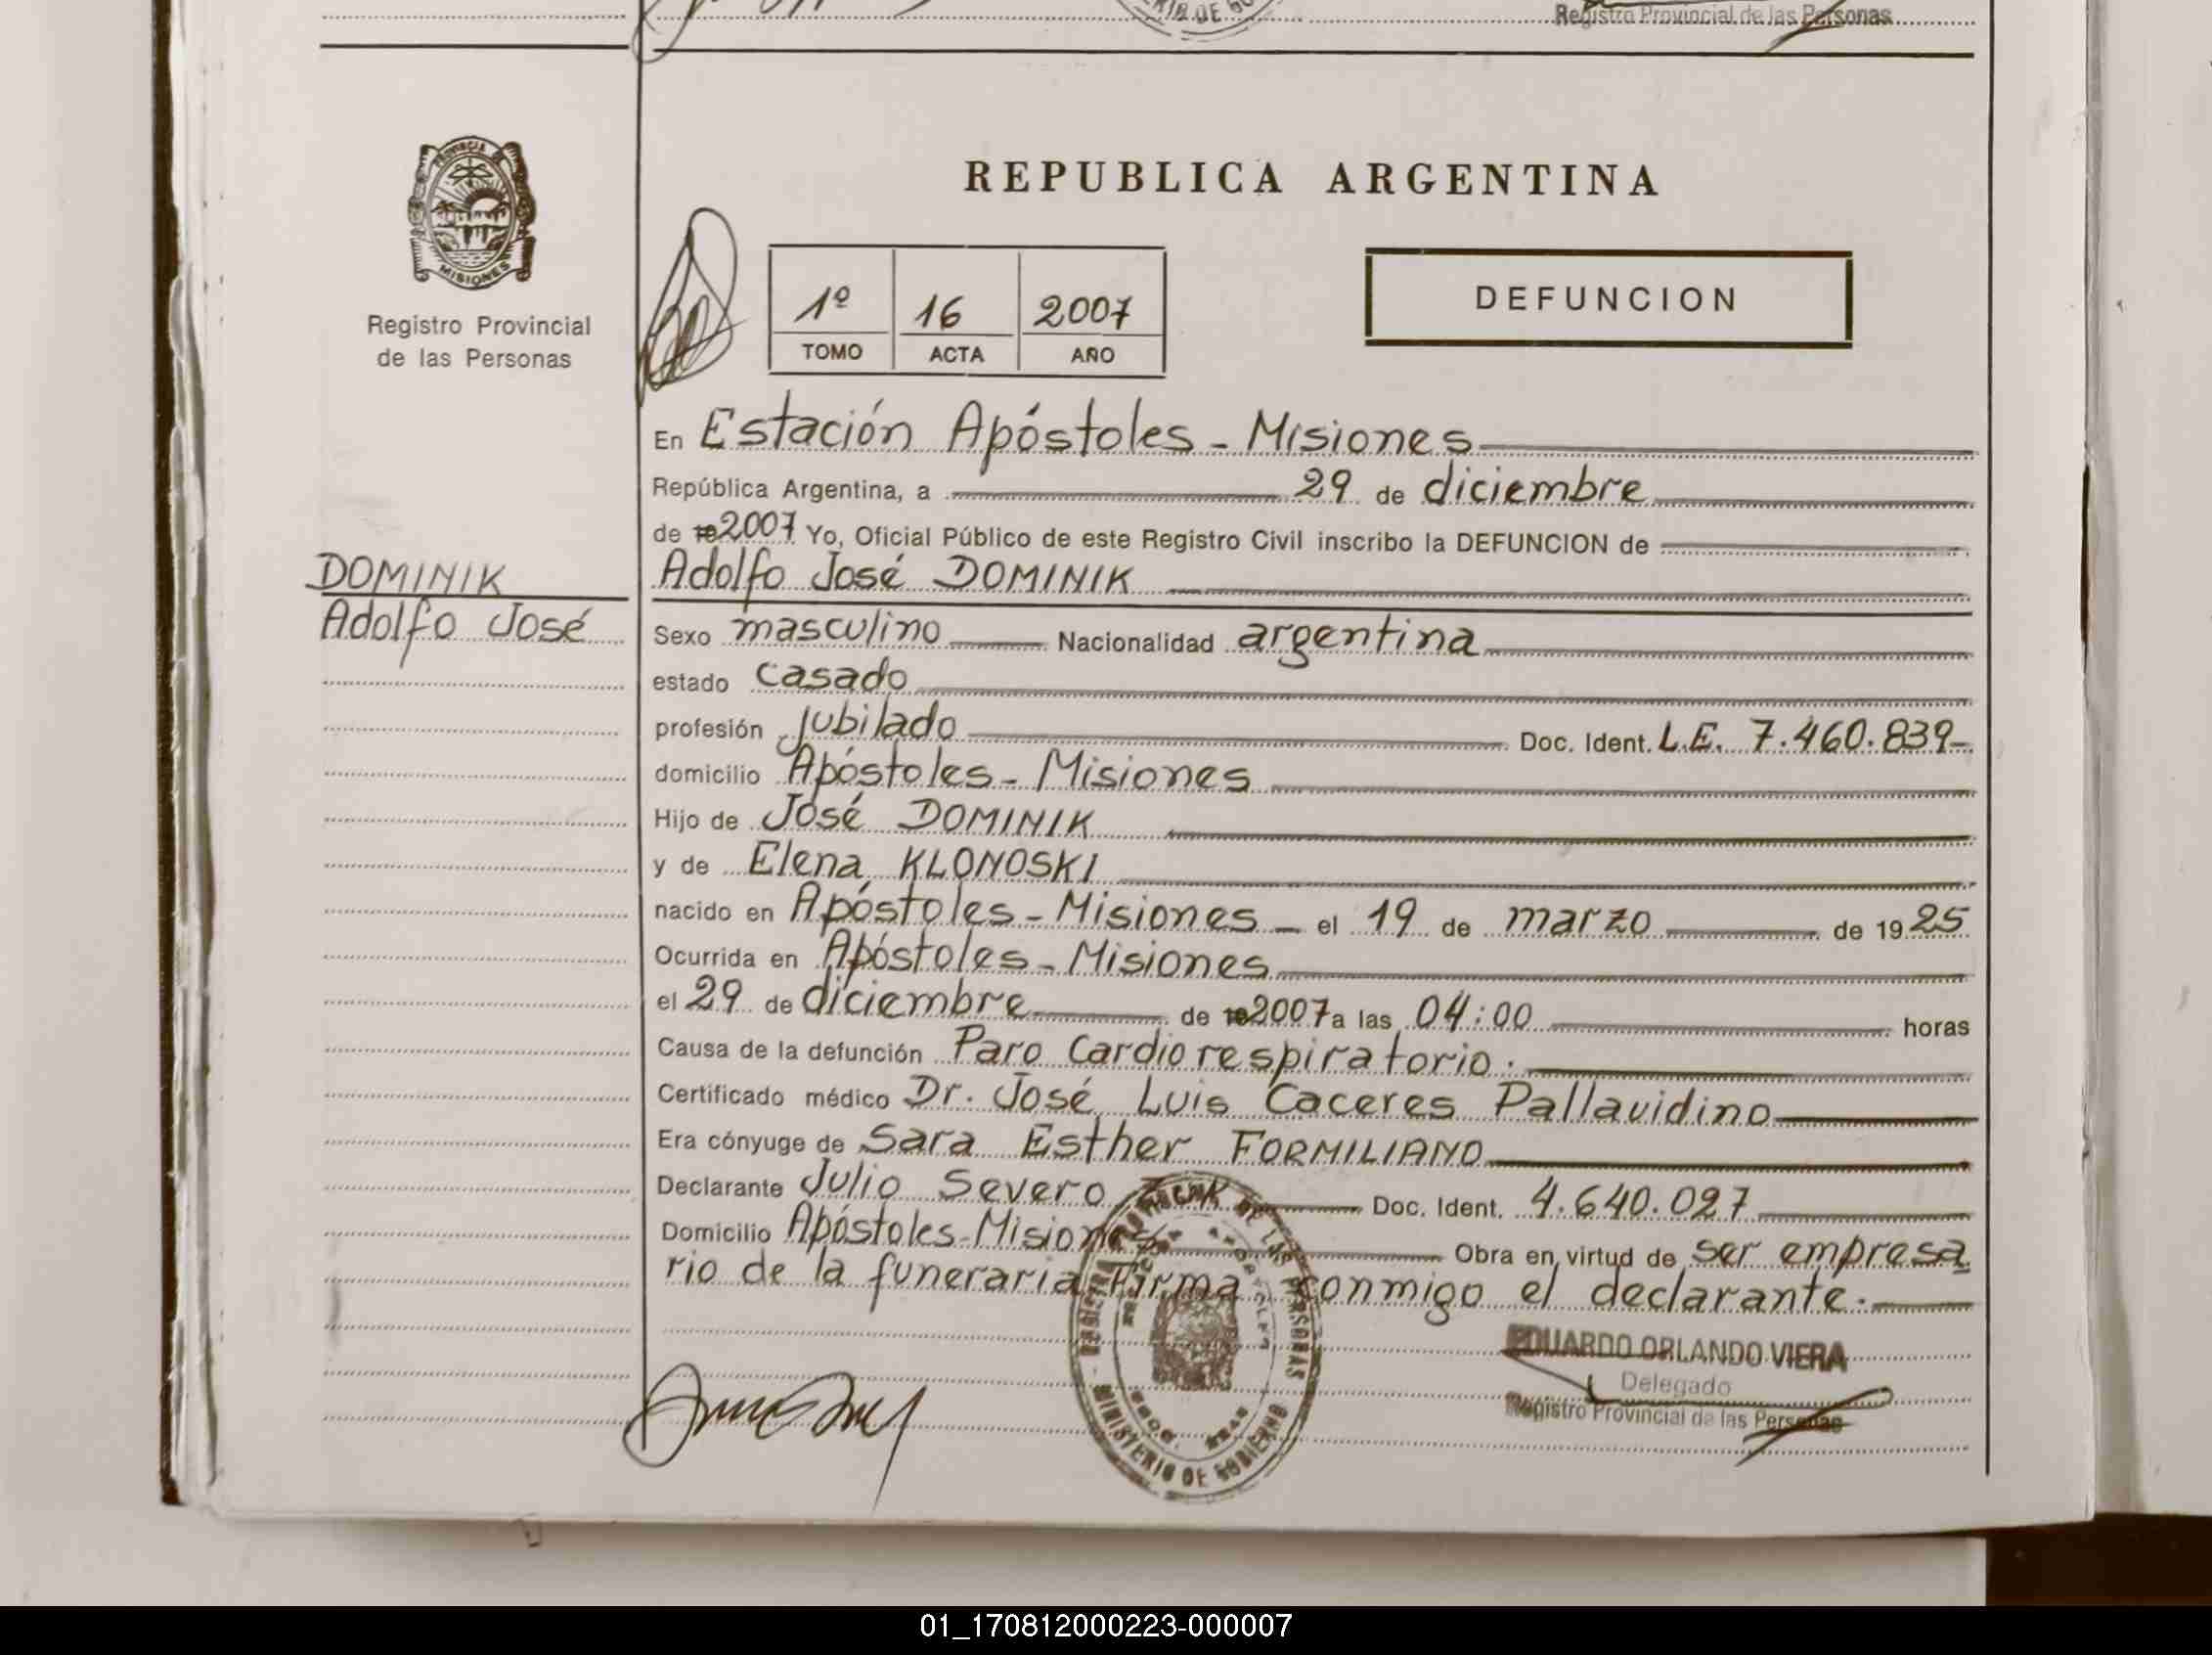 Registro Provincial de las Personas
PROVINCIA DE
MISIONES
Registro Provincial
de las Personas
REPUBLICA ARGENTINA
1º 16 2007
TOMO ACTA AÑO
DEFUNCION
En Estación Apóstoles - Misiones
República Argentina, a 29 de diciembre
de 19 2007 Yo, Oficial Público de este Registro Civil inscribo la DEFUNCION de
DOMINIK
Adolfo José
Adolfo José DOMINIK
Sexo masculino Nacionalidad argentina
estado casado
profesión jubilado Doc. Ident. L.E. 7.460.839-
domicilio Apóstoles - Misiones
Hijo de José DOMINIK
y de Elena KLONOSKI
nacido en Apóstoles - Misiones - el 19 de marzo de 1925
Ocurrida en Apóstoles - Misiones
el 29 de diciembre de 19 2007 a las 04:00 horas
Causa de la defunción Paro Cardiorespiratorio.
Certificado médico Dr. José Luis Caceres Pallavidino
Era cónyuge de Sara Esther FORMILIANO
Declarante Julio Severo Doc. Ident. 4.640.027
Domicilio Apóstoles-Misiones Obra en virtud de ser empresa
rio de la funeraria Firma conmigo el declarante.-
REGISTRO PROVINCIAL DE LAS PERSONAS
MINISTERIO DE GOBIERNO
EDUARDO ORLANDO VIERA
Delegado
Registro Provincial de las Personas
01_170812000223-000007